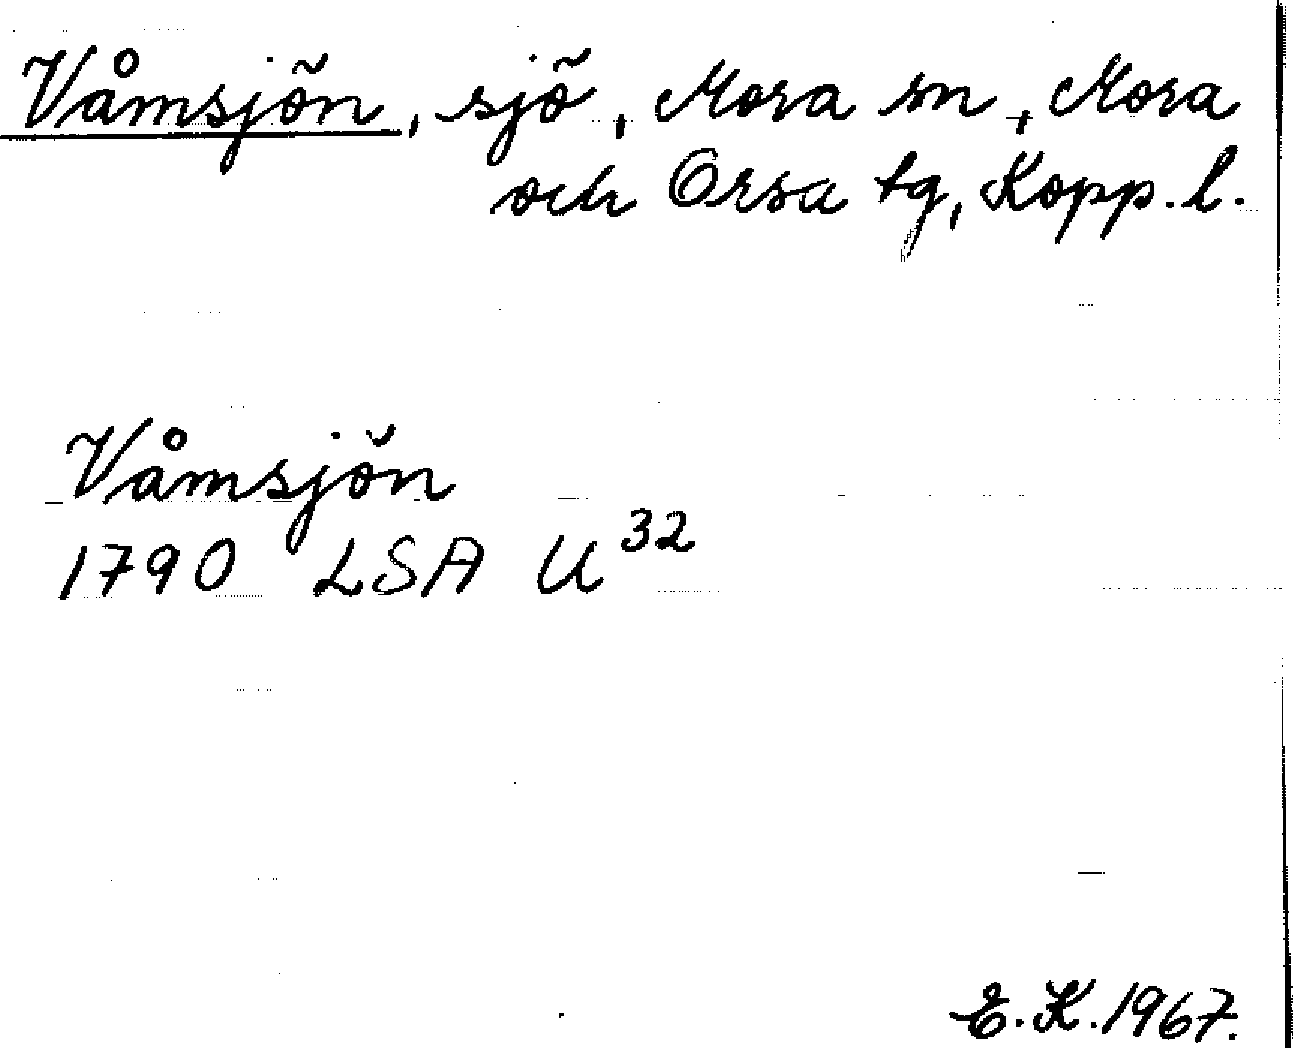 Våmsjön, sjö, Mora sn, Mora
och Orsa tg, Kopp. l.
Våmsjön
1790 LSA U³²
E.K. 1967.